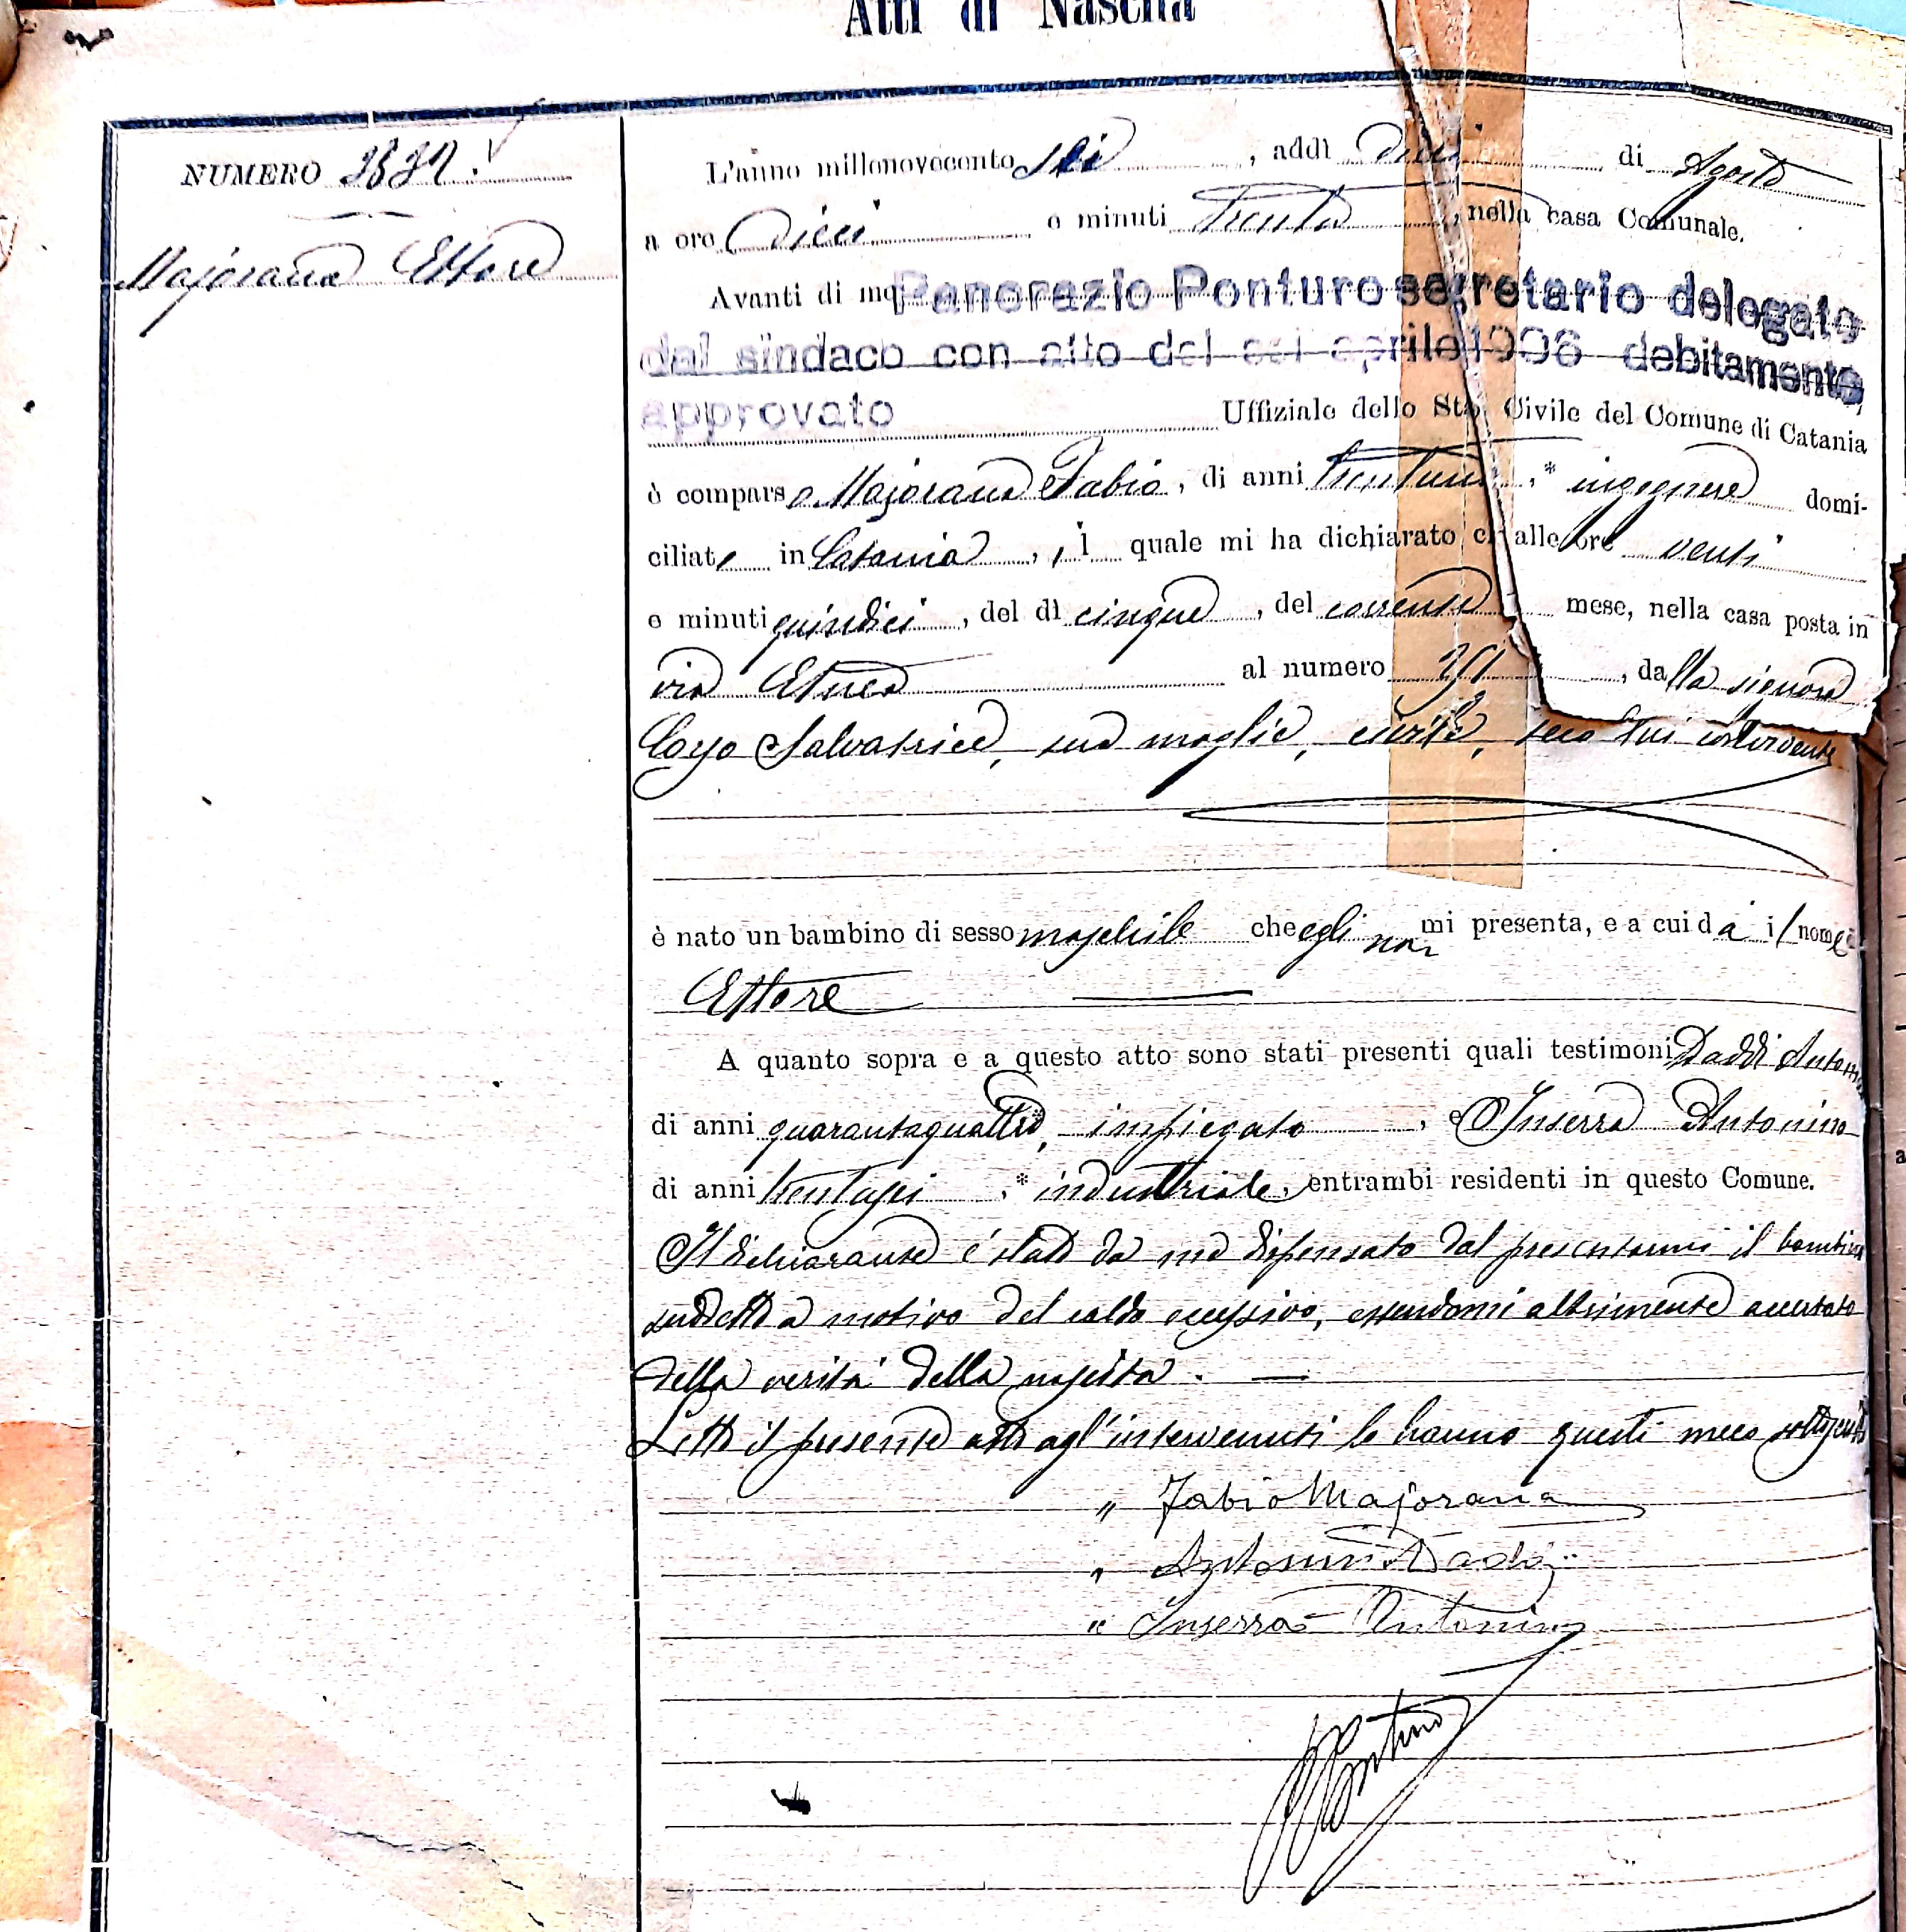 Atti di Nascita
NUMERO
Majorana Ettore
L'anno millenovecento sei, addì dieci di Agosto
a ore dieci e minuti trenta, nella casa Comunale.
Avanti di me Pancrazio Ponturo segretario delegato
dal sindaco con atto del sei aprile 1906 debitamente
approvato Uffiziale dello Stato Civile del Comune di Catania
è comparso Majorana Fabio, di anni trentuno,* ingegnere domi-
ciliato in Catania, il quale mi ha dichiarato che alle ore venti
e minuti quindici, del dì cinque, del corrente mese, nella casa posta in
via Etnea al numero, dalla signora
Corso Salvatrice, sua moglie, civile, seco lui convivente
è nato un bambino di sesso maschile che egli non mi presenta, e a cui dà il nome di
Ettore
A quanto sopra e a questo atto sono stati presenti quali testimoni Daddi Antonino
di anni quarantaquattro,* impiegato, e Inserra Antonino
di anni trentasei,* industriale, entrambi residenti in questo Comune.
Il dichiarante è stato da me dispensato dal presentarmi il bambino
suddetto a motivo del caldo eccessivo, essendomi altrimente accertato
della verità della nascita.
Letto il presente atto agl'intervenuti lo hanno questi meco sottoscritto
" Fabio Majorana
" Antonino Daddi
" Inserra Antonino
Ponturo